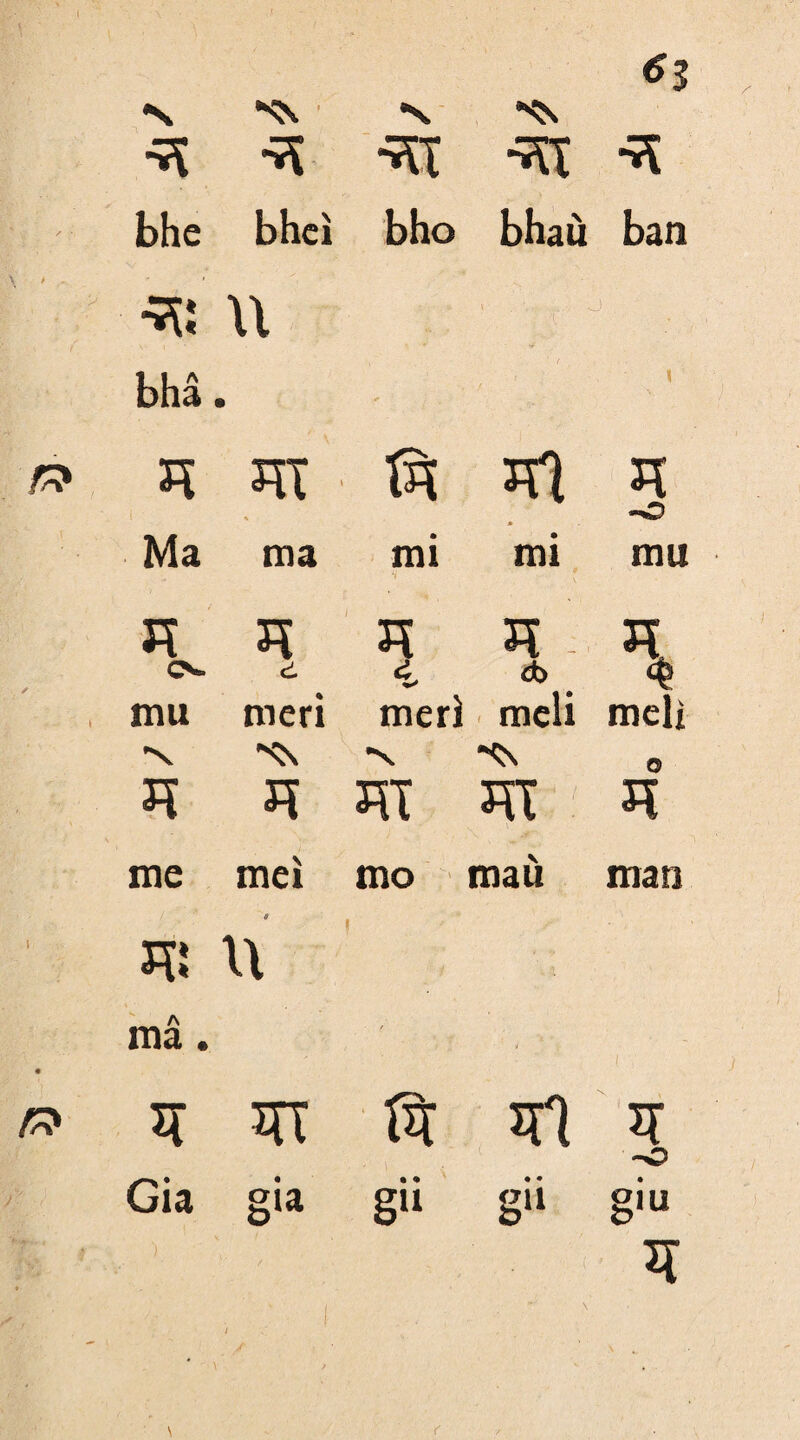 63
भे भै भो भौ भ
bhe bheì bho bhaù ban
भः ॥
bhâ.
म मा मि मी मु
Ma ma mi mi mu
मू मृ मॄ मॢ मॣ
mu meri merì meli melì
मे मै मो मौ मं
me meì mo maù man
मः ॥
mâ.
य या यि यी यु
Gia gia gii gii giu
य